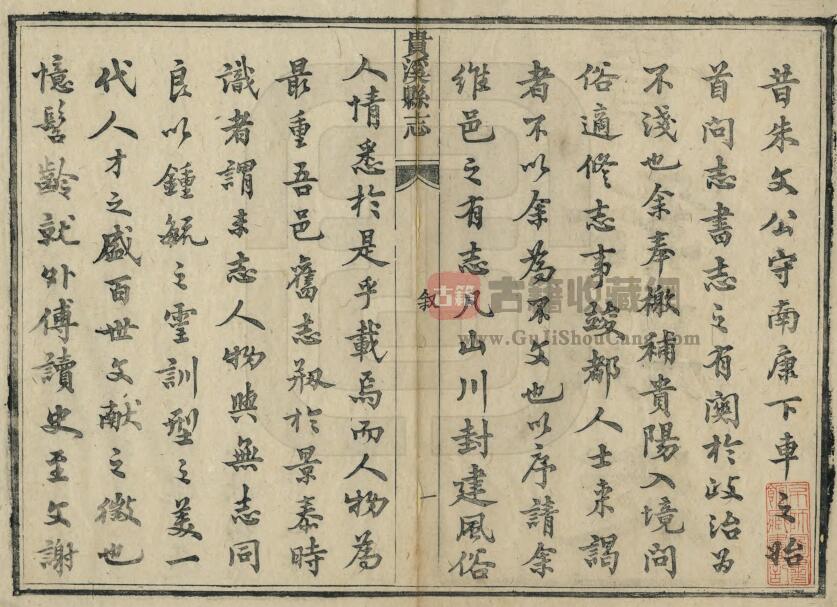 昔朱文公守南康下車之始
首問志書志之有関於政治為
不淺也余奉檄補貴陽入境問
俗適修志事竣都人士来謁
者不以余為不文也以序請余
維邑之有志凡山川封建風俗
貴溪縣志
叙
一
人情悉於是乎載焉而人物為
最重吾邑舊志剏於景泰時
識者謂志人物與無志同
良以鍾毓之靈訓型之美一
代人才之盛百世文献之徵也
憶髫齡就外傅讀史至文謝
古籍
古籍收藏網
www.GuJiShouCang.com